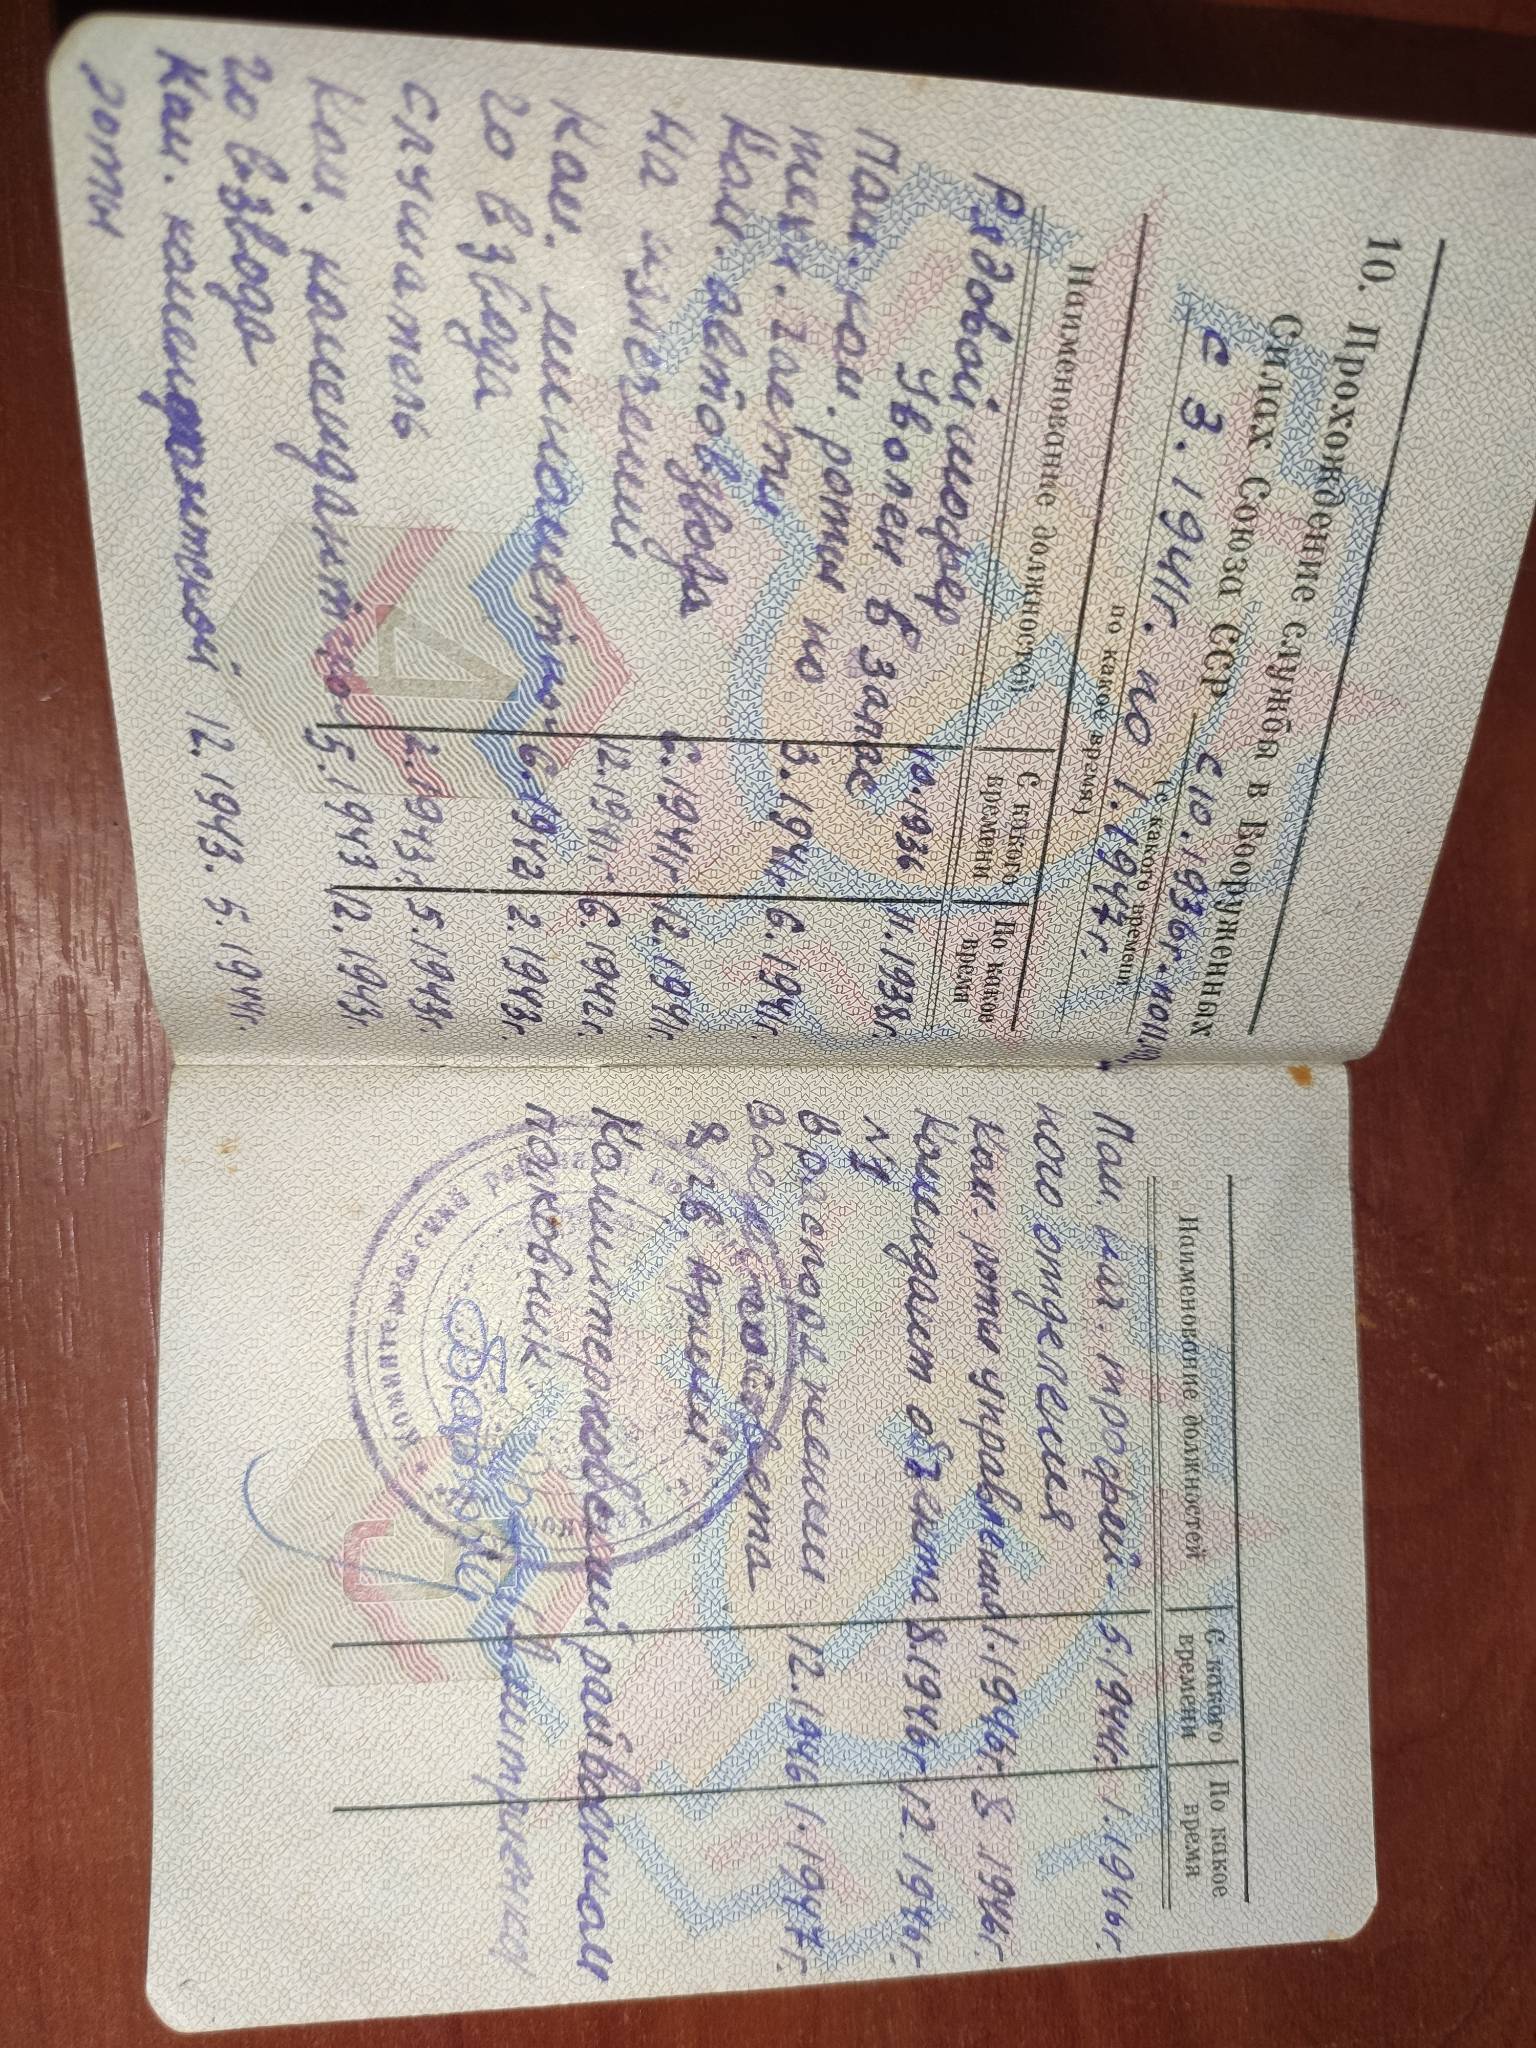 10. Прохождение службы в Вооруженных
Силах Союза ССР с 10.1936г. по 11.
(с какого времени
с 3.1941г. по 1.1947г.
по какое время)
Наименование должностей
С какого времени
По какое время
Рядовой шофер 10.1936 11.1938г.
Уволен в запас
Пом. ком. роты по
техн. части 3.1941г. 6.1941г.
Ком. автовзвода 6.1941г. 12.1941г.
На излечении 12.1941г. 6.1942г.
Ком. минометно- 6.1942 2.1943г.
го взвода
слушатель 2.1943г. 5.1943г.
Ком. комендантско- 5.1943 12.1943г.
го взвода
Ком. комендантской 12.1943. 5.1944г.
роты
Наименование должностей
С какого времени
По какое время
Пом. нач. трофей- 5.1944г. 1.1946г.
ного отделения
Ком. роты управления 1.1946г. 8.1946г.
Комендант 8.1946г. 12.1946г.
В распоряжении 12.1946 1.1947г.
Военного Совета
8 гв. Армии
Коминтерновский райвоенком
подковник